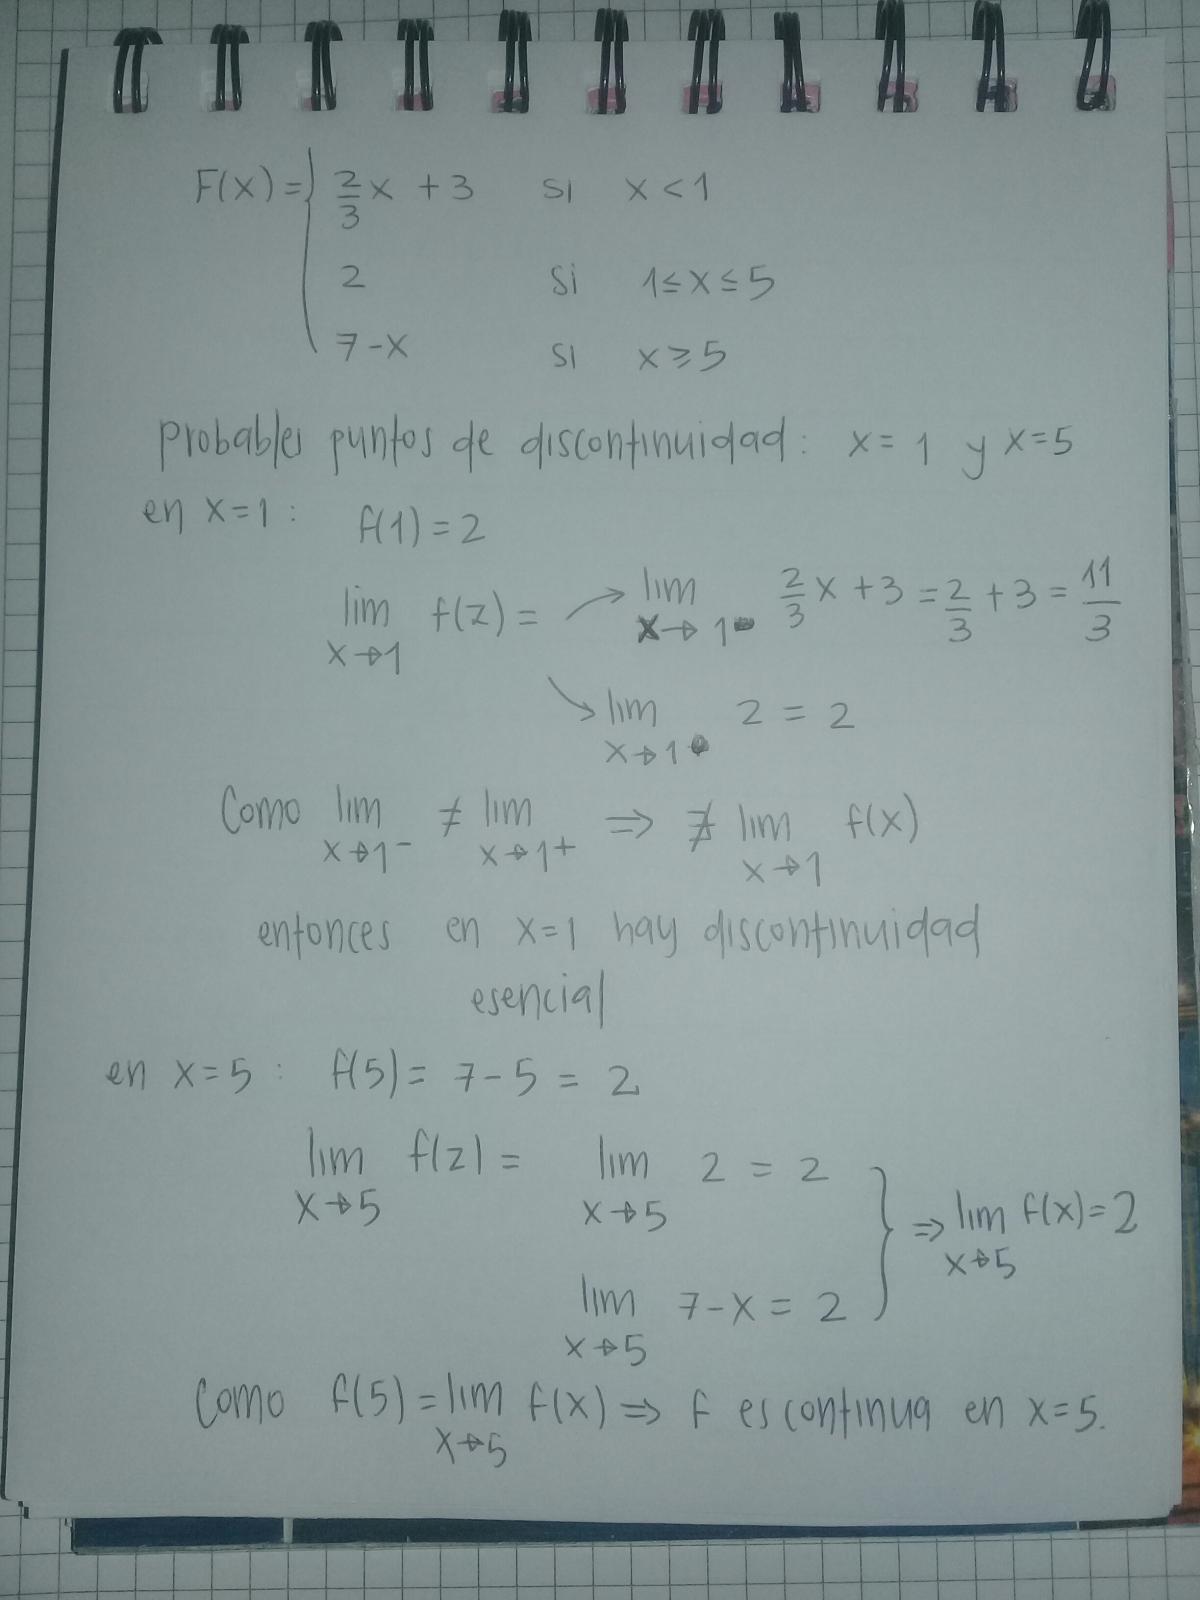 F(x) = { 2/3 x + 3 si x < 1
2 si 1 ≤ x ≤ 5
7 - x si x ≥ 5
Probables puntos de discontinuidad: x = 1 y x = 5
en x = 1 : f(1) = 2
lim x→1 f(z) = → lim x→1- 2/3 x + 3 = 2/3 + 3 = 11/3
↘ lim x→1 2 = 2
Como lim x→1- ≠ lim x→1+ ⇒ ∄ lim x→1 f(x)
entonces en x = 1 hay discontinuidad
esencial
en x = 5 : f(5) = 7 - 5 = 2
lim x→5 f(z) = lim x→5 2 = 2
lim x→5 7 - x = 2 } ⇒ lim x→5 f(x) = 2
Como f(5) = lim x→5 f(x) ⇒ f es continua en x = 5.